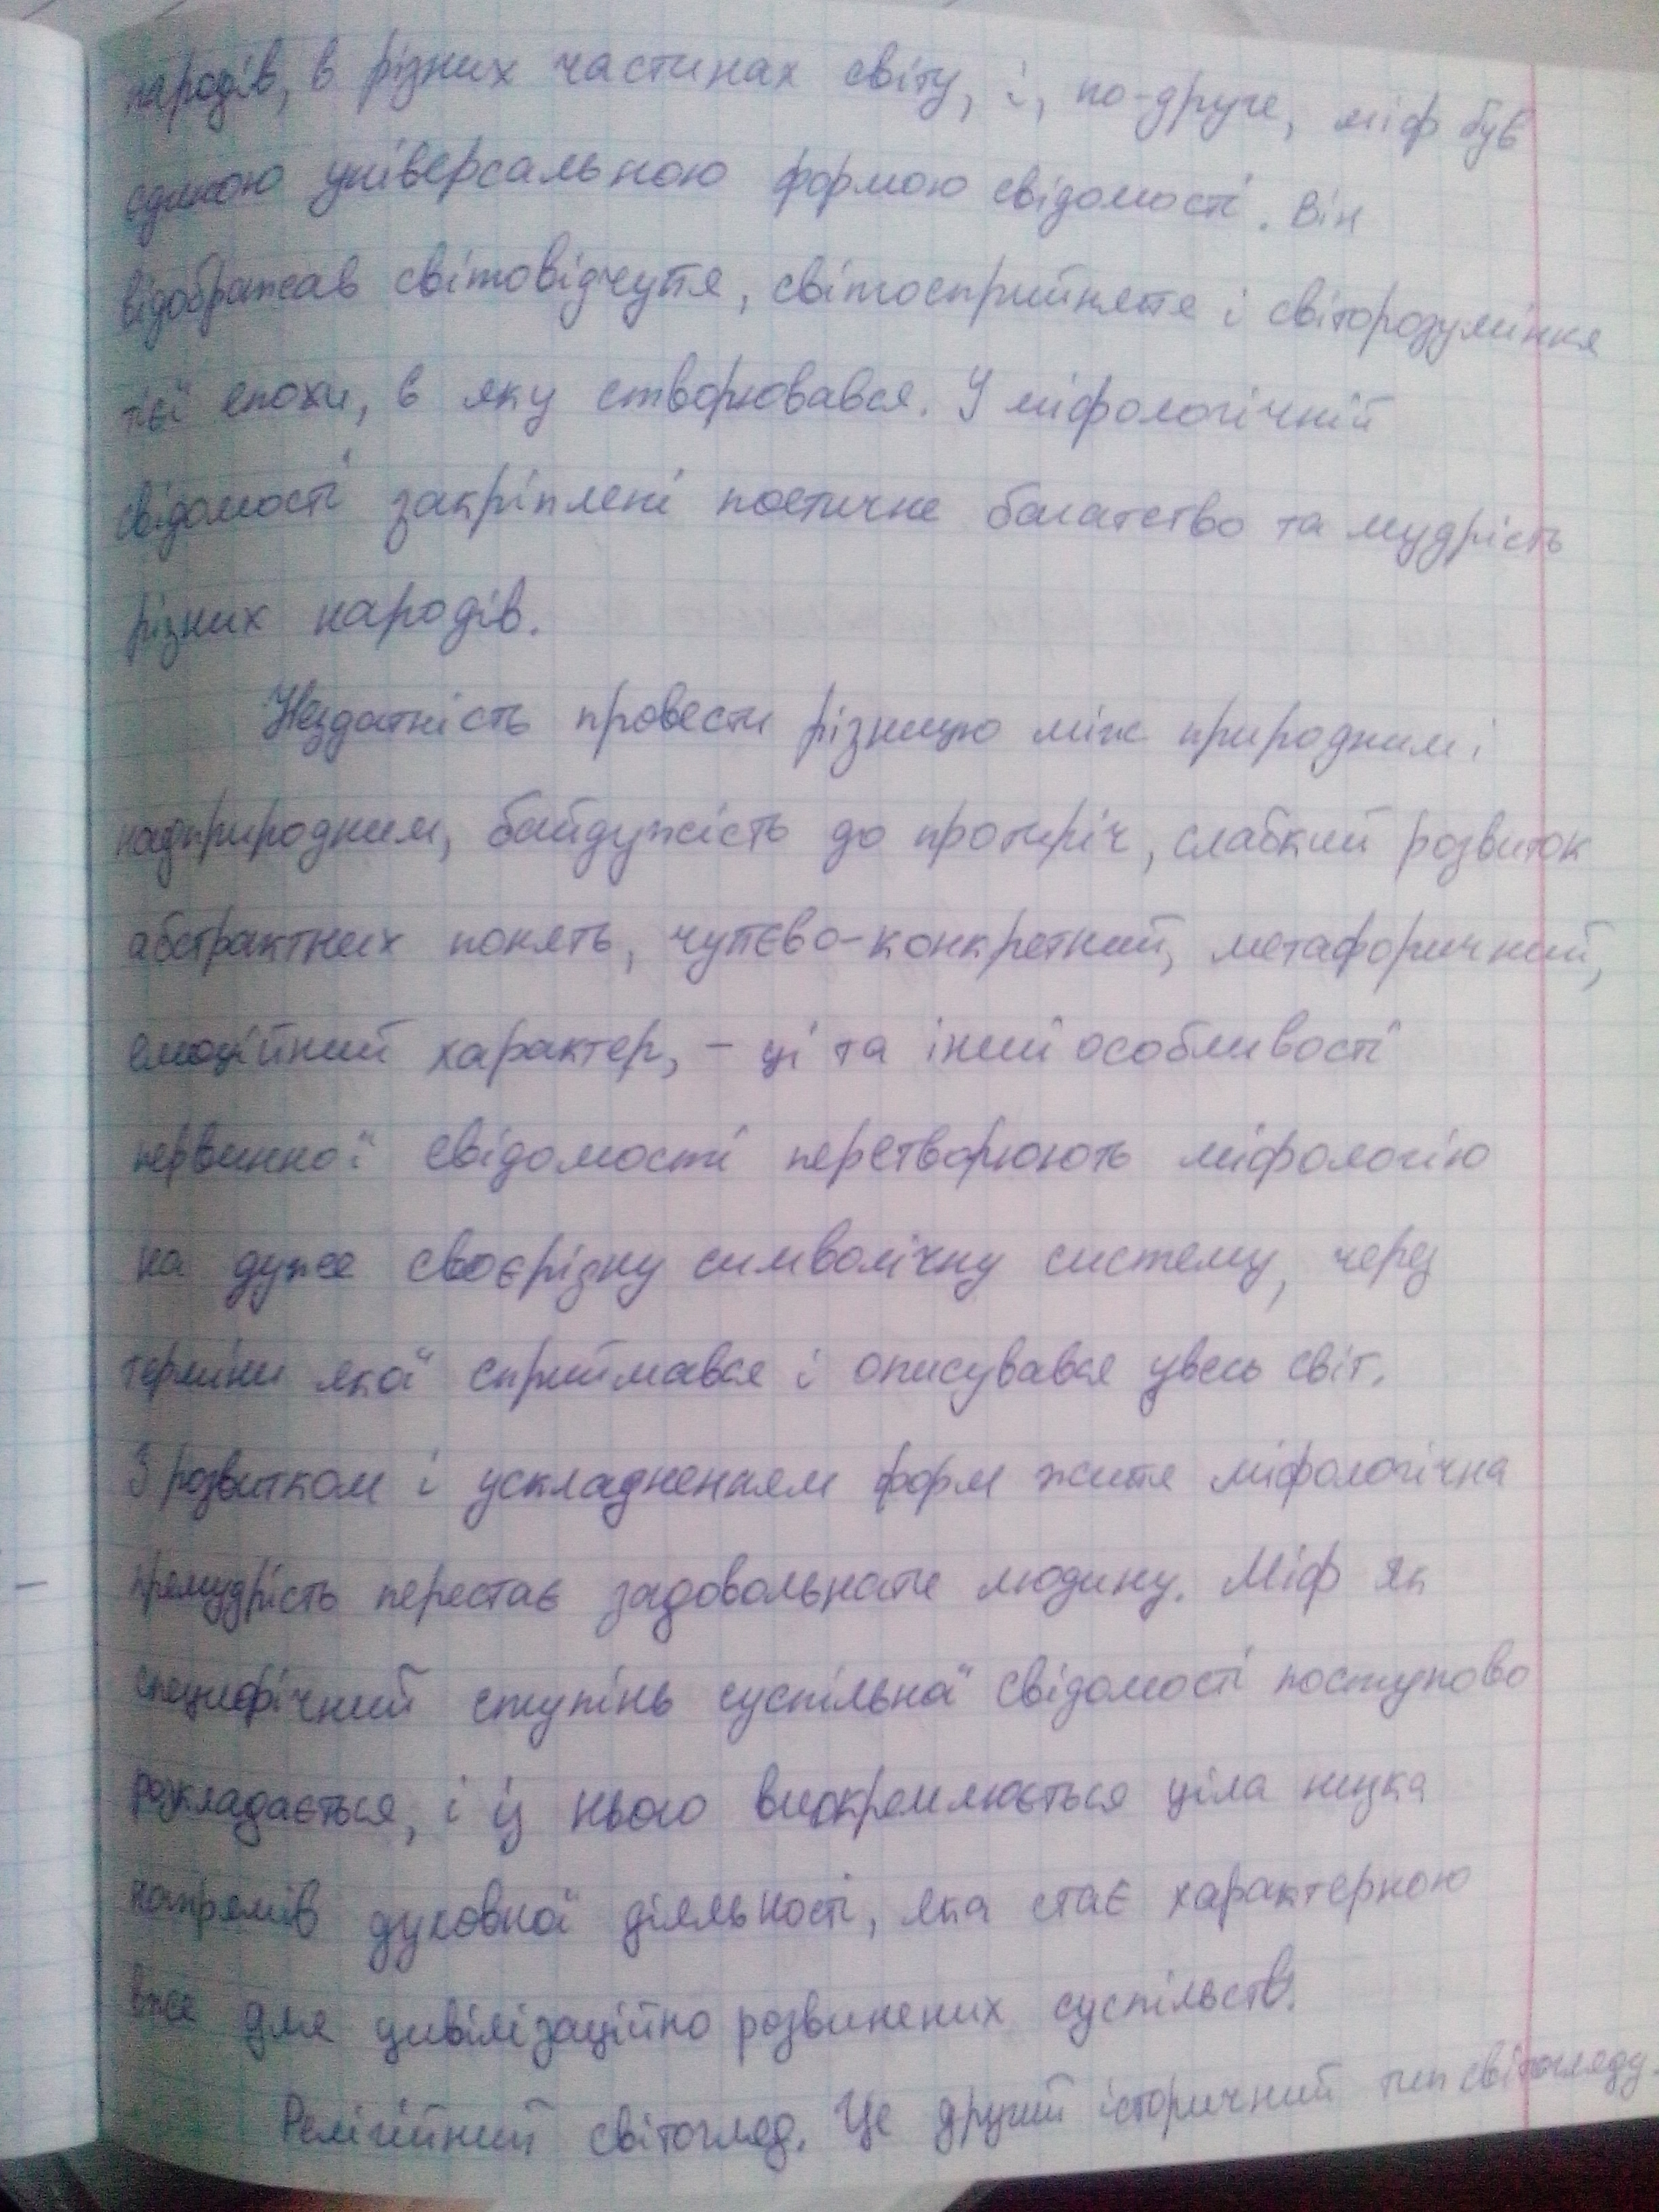 народів, в різних частинах світу, і, по-друге, міф був
єдиною універсальною формою свідомості. Він
відображав світовідчуття, світосприйняття і світорозуміння
тієї епохи, в яку створювався. У міфологічній
свідомості закріплені поетичне багатство та мудрість
різних народів.
Нездатність провести різницю між природним і
надприродним, байдужість до протиріч, слабкий розвиток
абстрактних понять, чуттєво-конкретний, метафоричний,
емоційний характер, - ці та інші особливості
первинної свідомості перетворюють міфологію
на дуже своєрізну символічну систему, через
терміни якої сприймався і описувався увесь світ.
З розвитком і ускладненням форм життя міфологічна
премудрість перестає задовольняти людину. Міф як
специфічний ступінь суспільної свідомості поступово
розкладається, і із нього виокремлюється ціла низка
напрямів духовної діяльності, яка стає характерною
вже для цивілізаційно розвинених суспільств.
Релігійний світогляд. Це другий історичний тип світогляду.